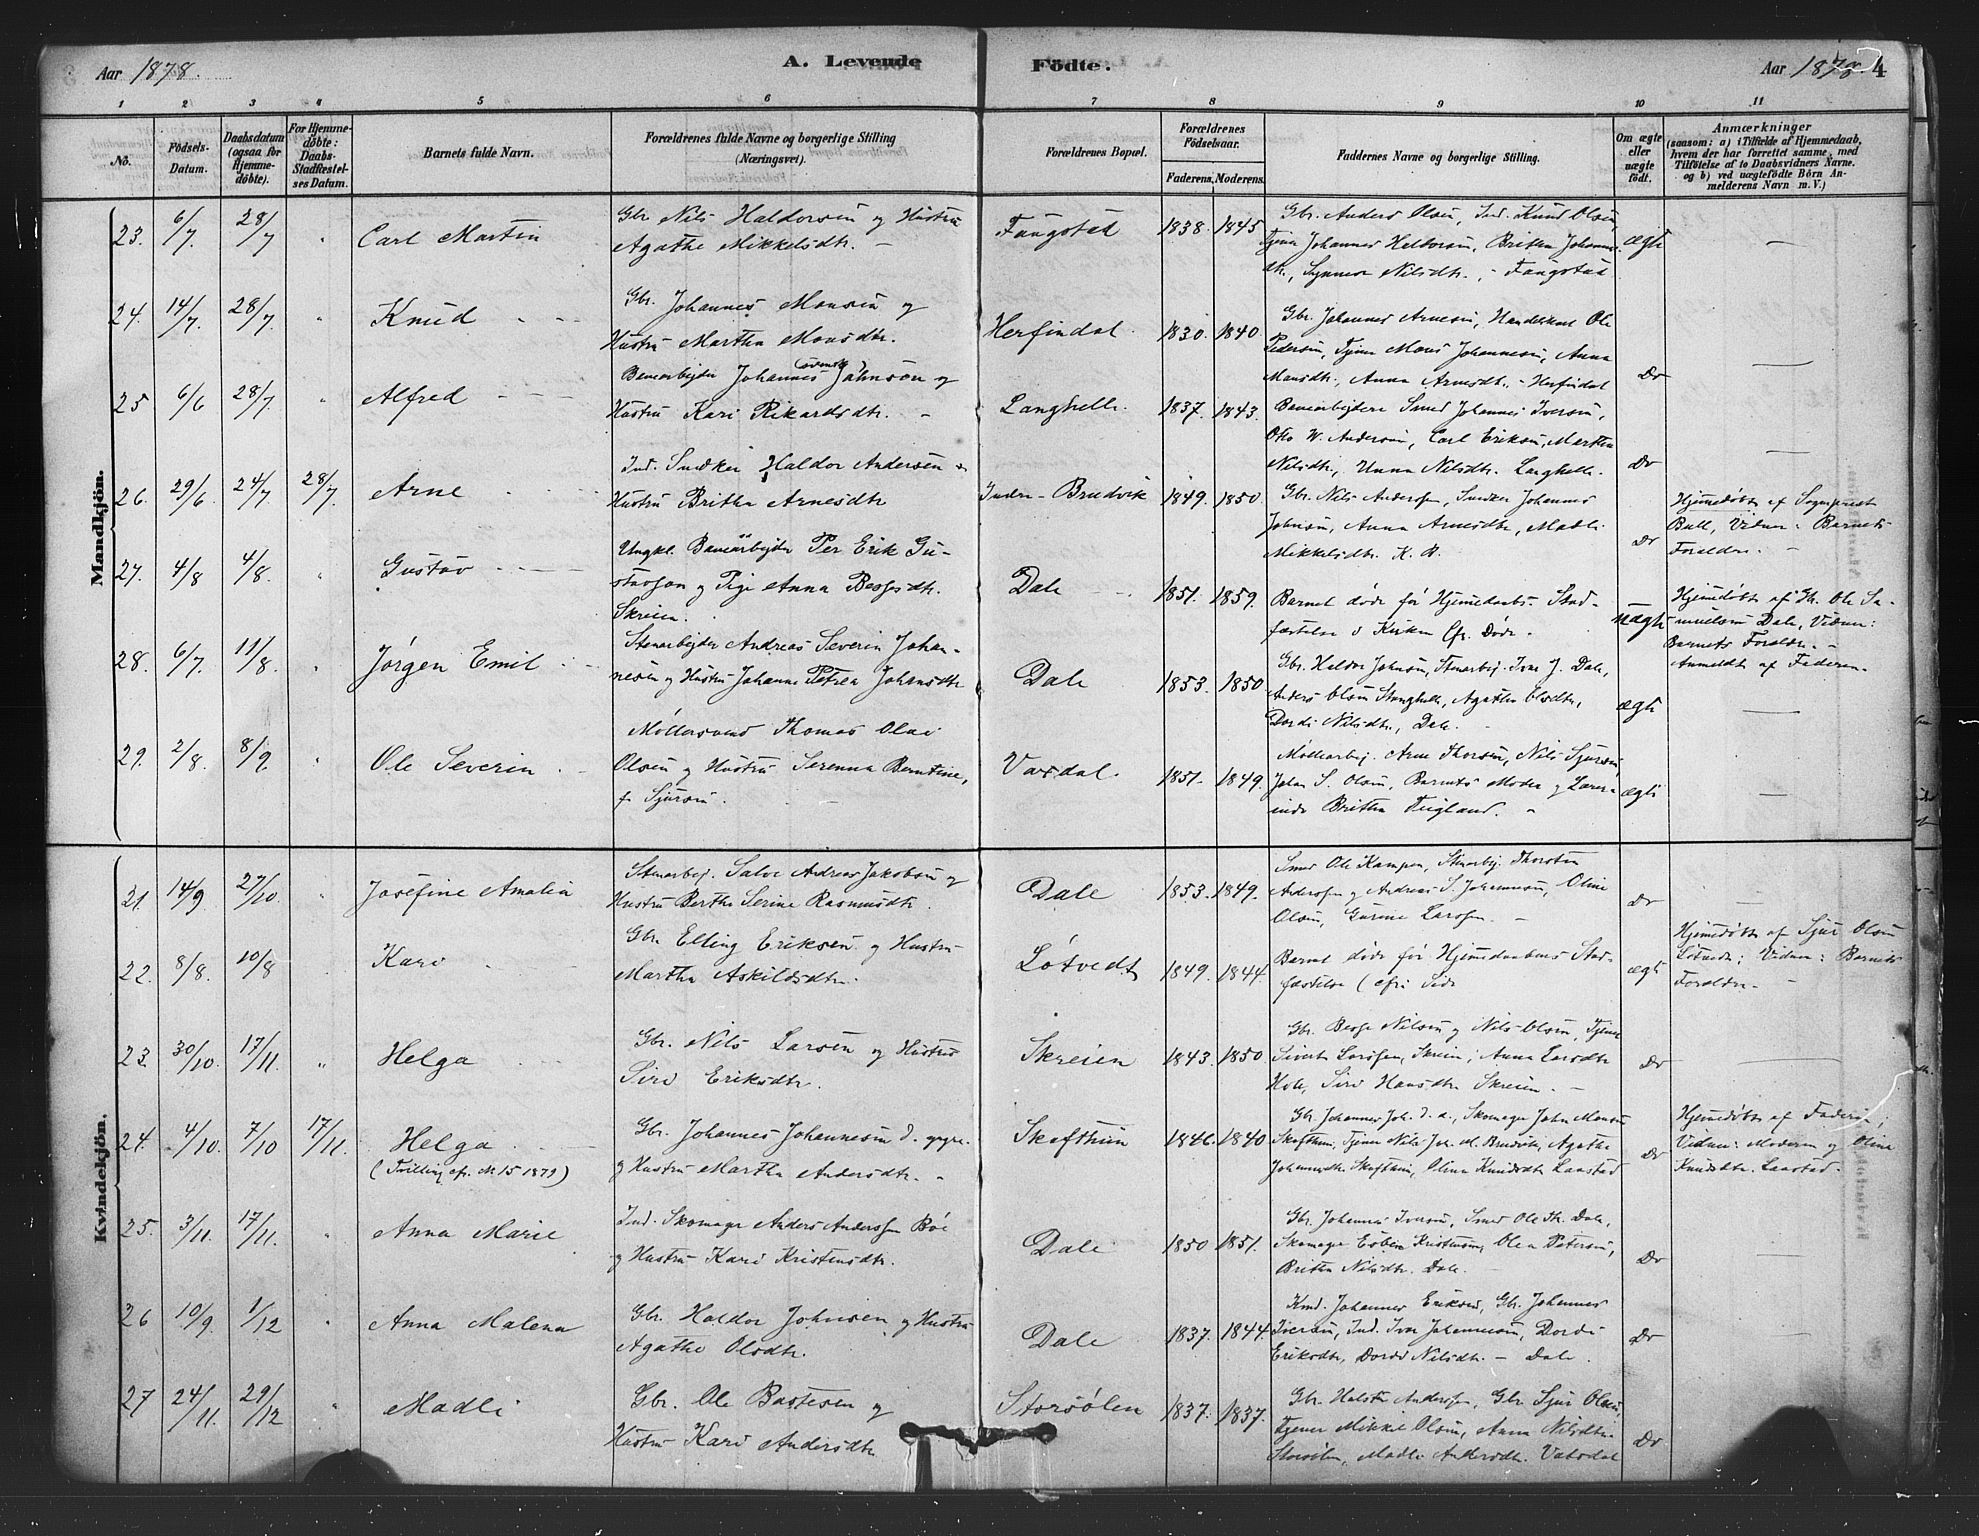 Aar 1878.
A. Levende Födte.
Aar 1878. 4
1 2 3 4 5 6 7 8 9 10 11
No.
Födsels-Datum.
Daabsdatum (ogsaa for Hjemme-döbte).
For Hjemme-döbte: Daabs-Stadfæstel-ses Datum.
Barnets fulde Navn.
Forældrenes fulde Navne og borgerlige Stilling (Næringsvei).
Forældrenes Bopæl.
Forældrenes Födselsaar.
Faderens. Moderens.
Faddernes Navne og borgerlige Stilling.
Om ægte eller uægte födt.
Anmærkninger (saasom: a) i Tilfælde af Hjemmedaab, hvem der har forrettet samme, med Tilföielse af to Daabsvidners Navne. og b) ved uægtefödte Börn An-melderens Navn m. V.)
Mandkjön.
23. 6/7 28/7 " Carl Martin
Gbr. Nils Haldorsen og Hustru
Agathe Mikkelsdtr. -
Fangstad 1838. 1845
Gbr. Anders Olsen, Ind. Knud Olsen,
Tjener Johannes Heldorsen, Britha Johannes-
dtr., Synneva Nilsdtr., - Fangstad
ægte -
24. 14/7. 28/7. " Knud
Gbr. Johannes Monsen og
Hustru Martha Monsdtr.
Herfindal. 1830. 1840.
Gbr. Johannes Arnesen, Handelskar Ole
Pedersen, Tjener Mons Johannesen, Anna
Monsdtr., Anna Arnesdtr. - Herfindal
Do -
25 6/6 28/7. " Alfred
Banearbejder Johannes (svensk) Johnson og
Hustru Kari Rikardsdtr. -
Langhelle. 1837. 1843.
Banearbejdere Smed Johannes Iversen,
Otto W. Andersen, Carl Eriksen, Martha
Nilsdtr., Unna Nilsdtr. Langhelle.
Do -
26. 29/6. 24/7 28/7 Arne
Ind. Snedker Haldor Andersen og
Hustru Britha Arnesdtr
Indre-Bruvik 1849. 1850.
Gbr. Nils Andersen, Snedker Johannes
Johnsen, Anna Arnesdtr., Madli
Mikkelsdtr. K. R.
Do
Hjemedøbt af Sognepræst
Bull, Vidner: Barnets
Forældre. -
27. 4/8 4/8. " Gustav
Ungkl. Banearbejder Per Erik Gu-
stavson og Pige Anna Børgesdtr.
Skreien.
Dale 1851. 1859.
Barnet døde før Hjemedaabs- Stad-
fæstelse i Kirken cfr. Døde.
uægte
Hjemedøbt af Gbr. Ole Sa-
muelsen Dale, Vidner:
Barnets Forældre. -
Anmeldt af Faderen.
28. 6/7. 11/8. " Jørgen Emil
Stenarbejder Andreas Severin Johan-
nesen og Hustru Johanne Petrea Johansdtr
Dale 1853. 1850
Gbr. Haldor Johnsen, Stenarbej. Ivar J. Dale,
Anders Olsen Stanghelle, Agatha Olsdtr.,
Dordi Nilsdtr., Dale.
ægte -
29. 2/8. 8/9. " Ole Severin
Møllersvend Thomas Olai
Olsen og Hustru Serenna Berntine,
f. Sjursen.
Vaxdal. 1851. 1849.
Møllearbej. Arne Thorsen, Nils Sjursen,
John S. Olsen, Barnets Moder og Lærer-
inde Britha Teigland. "
ægte -
Kvindekjön.
21. 14/9. 27/10. " Josefine Amalia
Stenarbej. Salve Andreas Jakobsen og
Hustru Berthe Serine Rasmusdtr.
Dale 1853. 1849.
Smed Ole Kampen, Stenarbej. Thorsten
Andersen og Andreas S. Johannesen, Oline
Olsen, Gurine Larsen. -
Do -
22. 8/8. 10/8 Kari
Gbr. Elling Eriksen og Hustru
Martha Askildsdtr.
Løtvedt 1849. 1844.
Barnet døde før Hjemedaabens Stad-
fæstelse (cfr. Side
ægte
Hjemedøbt af Sjur Olsen
Løtvedt; Vidner: Barnets
Forældre. -
23. 30/10. 17/11. " Helga
Gbr. Nils Larsen og Hustru
Siri Eriksdtr.
Skreien 1843. 1850.
Gbr. Børge Nilsen og Nils Olsen, Tjener
Sivert Larsen, Skreien, Anna Larsdtr
Hole, Siri Hansdtr Skreien. -
Do -
24. 4/10. 7/10 17/11. Helga
(Tvilling cfr. No 15 1879)
Gbr. Johannes Johannesen d. yngre.
og Hustru Martha Andersdtr. "
Skafthun 1846. 1840
Gbr. Johannes Joh. d. æ., Skomager John Monsen
Skafthun, Tjener Nils Joh. M. Bruvik, Agatha
Johannesdtr. Skafthun, Olina Knudsdtr Laastad
Do
Hjemedøbt af Faderen;
Vidner: Moderen og Olina
Knudsdtr. Laastad.
25. 3/11. 17/11. " Anna Marie
Ind. Skomager Anders Andersen Bøe
og Hustru Kari Kristensdtr.
Dale 1850 1851.
Gbr. Johannes Iversen, Smed Ole Th. Dale,
Skomager Esben Kristensen, Olea Petersen,
Britha Nilsdtr. Dale.
Do -
26 10/9. 1/12 " Anna Malena
Gbr. Haldor Johnsen og Hustru
Agatha Olsdtr.
Dale 1837. 1844.
Kmd. Johannes Eriksen, Gbr. Johannes
Iversen, Ind. Ivar Johannesen, Dordi
Eriksdtr, Dordi Nilsdtr. - Dale.
Do -
27 24/11. 29/12 " Madli
Gbr. Ole Bastesen og
Hustru Kari Andersdtr
Storsölen 1837. 1837.
Gbr. Halsten Andersen, Gbr. Sjur Olsen,
Tjener Mikkel Olsen, Anna Nilsdtr.
Storsölen, Madli Andersdtr. Vatsdal
Do